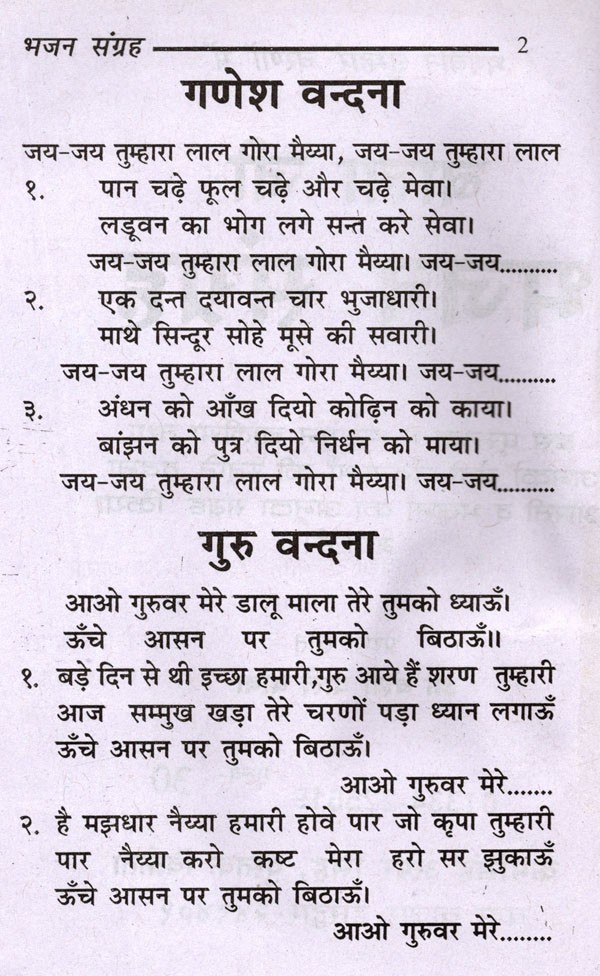 भजन संग्रह 2
गणेश वन्दना
जय-जय तुम्हारा लाल गोरा मैय्या, जय-जय तुम्हारा लाल
१. पान चढ़े फूल चढ़े और चढ़े मेवा।
लडूवन का भोग लगे सन्त करे सेवा।
जय-जय तुम्हारा लाल गोरा मैय्या। जय-जय..........
२. एक दन्त दयावन्त चार भुजाधारी।
माथे सिन्दूर सोहे मूसे की सवारी।
जय-जय तुम्हारा लाल गोरा मैय्या। जय-जय..........
३. अंधन को आँख दियो कोढ़िन को काया।
बांझन को पुत्र दियो निर्धन को माया।
जय-जय तुम्हारा लाल गोरा मैय्या। जय-जय..........
गुरु वन्दना
आओ गुरुवर मेरे डालू माला तेरे तुमको ध्याऊँ।
ऊँचे आसन पर तुमको बिठाऊँ॥
१. बड़े दिन से थी इच्छा हमारी,गुरु आये हैं शरण तुम्हारी
आज सम्मुख खड़ा तेरे चरणों पड़ा ध्यान लगाऊँ
ऊँचे आसन पर तुमको बिठाऊँ।
आओ गुरुवर मेरे........
२. है मझधार नैय्या हमारी होवे पार जो कृपा तुम्हारी
पार नैय्या करो कष्ट मेरा हरो सर झुकाऊँ
ऊँचे आसन पर तुमको बिठाऊँ।
आओ गुरुवर मेरे........